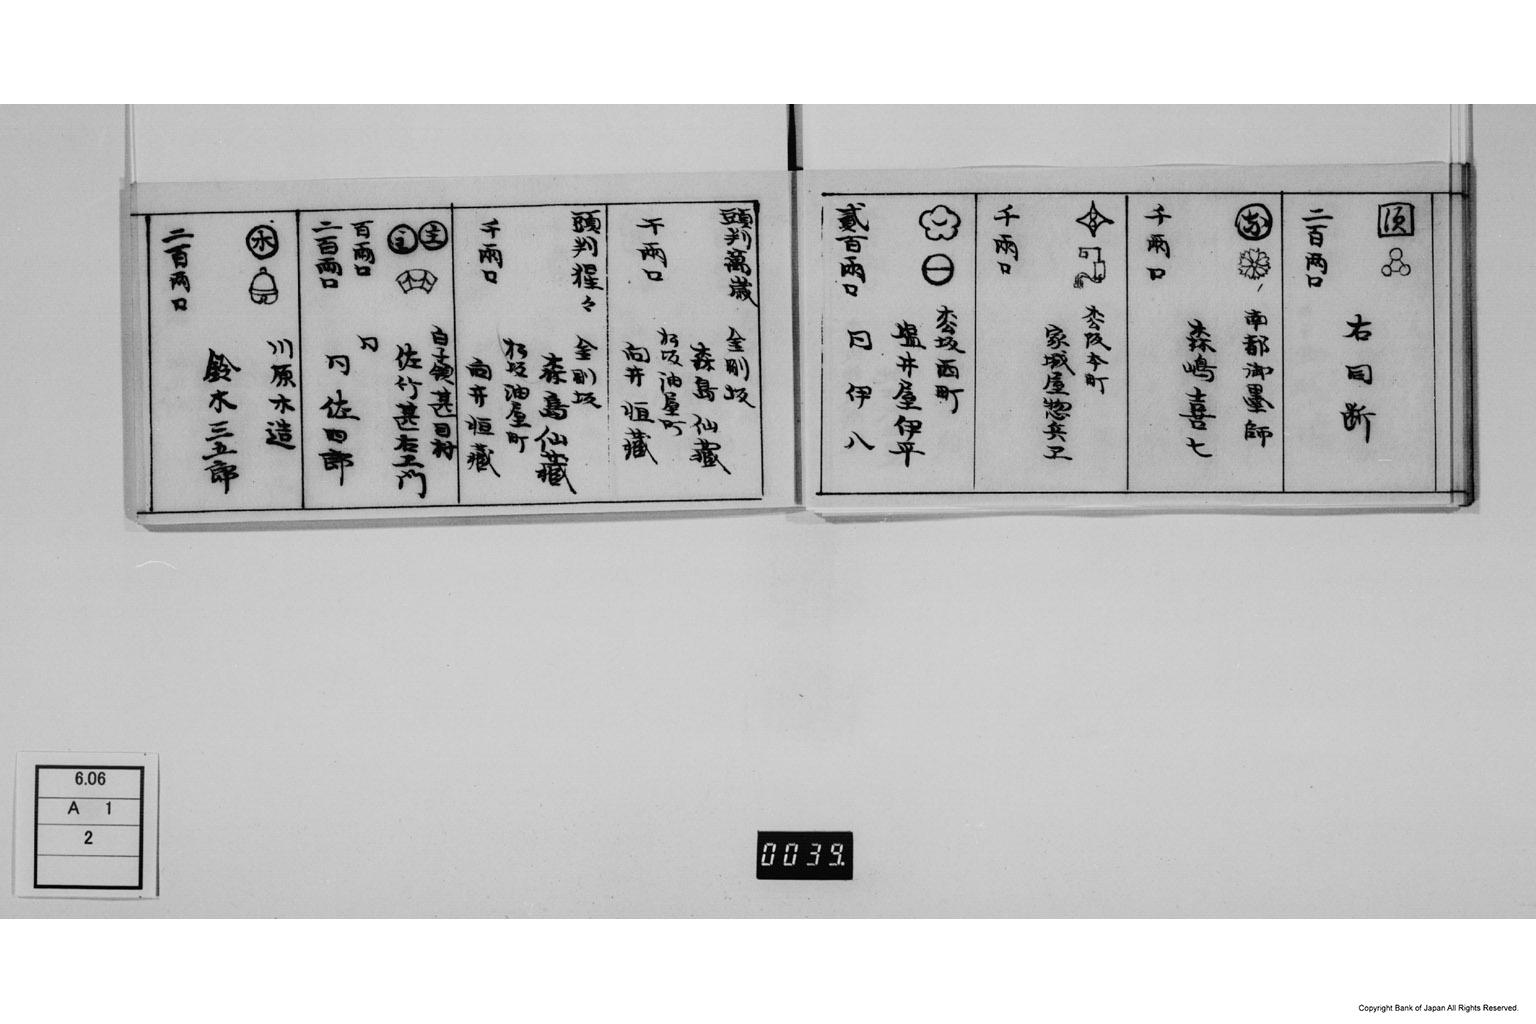 須
二百両口
右同断
南都御墨師
森嶋喜七
千両口
松阪本町
家城屋惣兵卫
千両口
松坂西町
塩井屋伊平
同 伊八
貳百両口
頭判萬歳
金剛坂
森島仙藏
松坂油屋町
向井恒藏
千両口
頭判猩々
金剛坂
森島仙藏
松坂油屋町
向井恒藏
千両口
主
主
白子領甚目村
佐竹甚右エ門
百両口
同
同 佐四郎
二百両口
水
川原木造
鈴木三五郎
二百両口
6.06
A 1
2
0039
Copyright Bank of Japan All Rights Reserved.